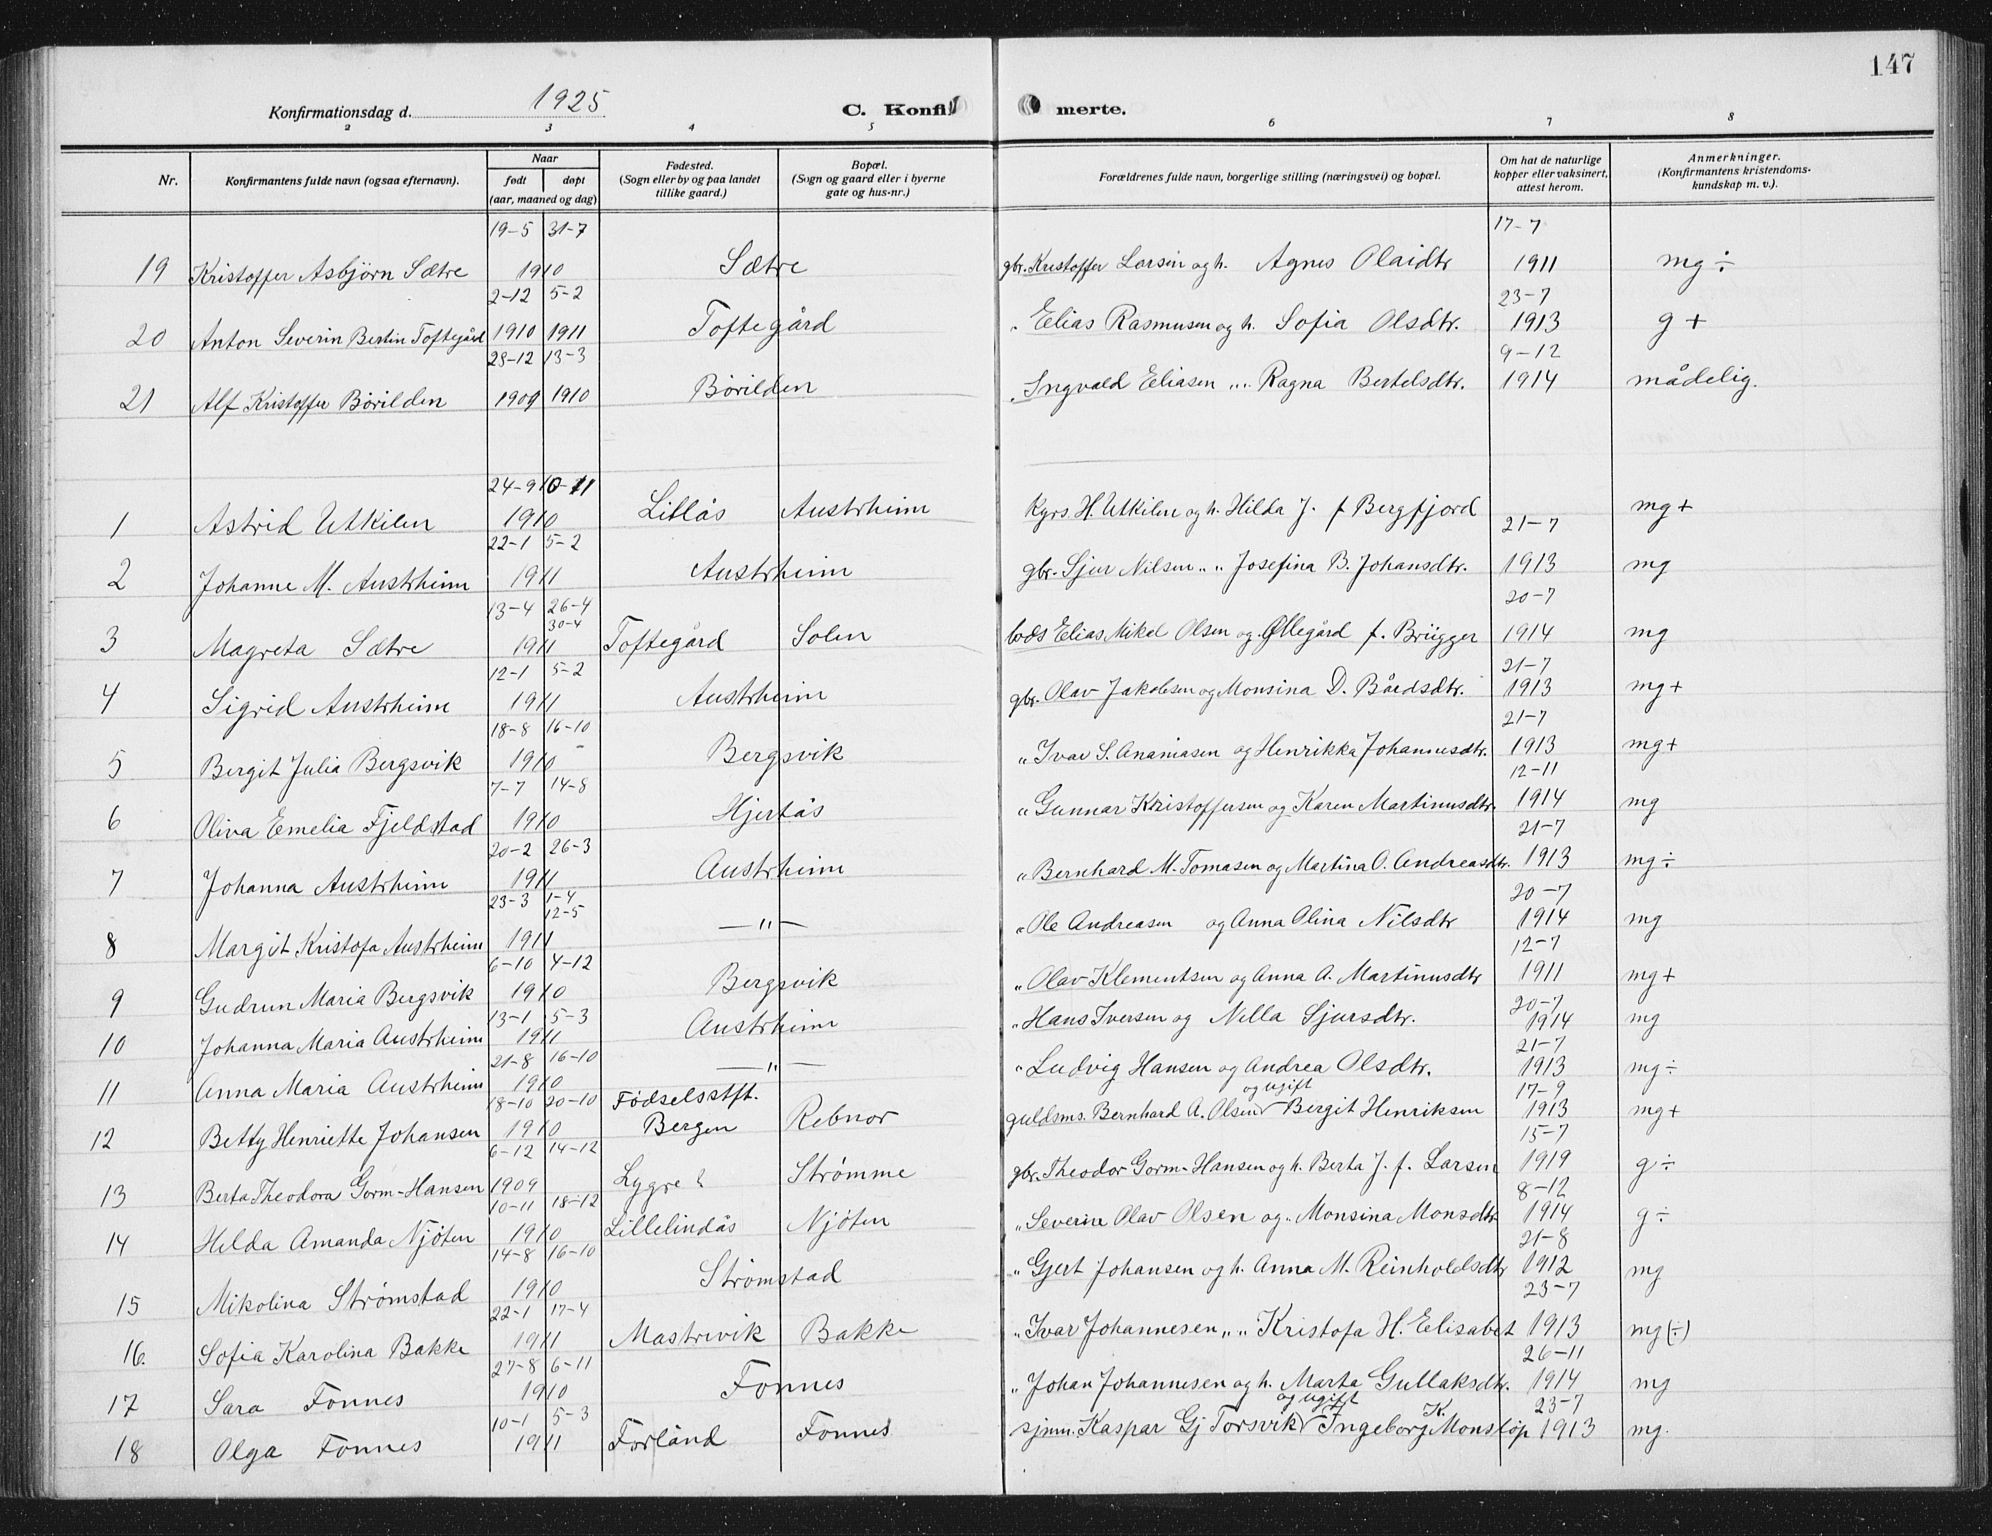 147
Konfirmationsdag d. 1925 C. Konfir merte.
2 3 4 5 6 7 8
Nr. Konfirmantens fulde navn (ogsaa efternavn). Naar født døpt (aar, maaned og dag) Fødested. (Sogn eller by og paa landet tillike gaard.) Bopæl. (Sogn og gaard eller i byerne gate og hus-nr.) Forældrenes fulde navn, borgerlige stilling (næringsvei) og bopæl. Om hat de naturlige kopper eller vaksinert, attest herom. Anmerkninger. (Konfirmantens kristendoms-kundskap m. v.).
19-5 31-7 17-7
19 Kristoffer Asbjörn Sætre 1910 Sætre gbr. Kristoffer Larsen og h. Agnes Olaidtr 1911 mg ÷
2-12 5-2 23-7
20 Anton Severin Bertin Toftegård 1910 1911 Toftegård " Elias Rasmusen og h. Sofia Olsdtr. 1913 g +
28-12 13-3 9-12
21 Alf Kristoffer Börilden 1909 1910 Börilden " Ingvald Eliasen " " Ragna Bertelsdtr. 1914 mådelig.
24-9 10-11
1 Astrid Utkilen 1910 Litlås Austrheim Kgrs. H. Utkilen og h. Hilda J. f Bergfjord mg +
22-1 5-2 21-7
2 Johanne M. Austrheim 1911 Austrheim gbr. Sjur Nilsen " " Josefina B. Johansdtr. 1913 mg
13-4 26-4 30-4 20-7
3 Magreta Sætre 1911 Toftegård Solen lods Elias Mikel Olsen og Øllegård f. Brügger 1914 mg
12-1 5-2 21-7
4 Sigrid Austrheim 1911 Austrheim gbr. Olav Jakobsen og Monsina D. Bårdsdtr. 1913 mg +
18-8 16-10 21-7
5 Bergit Julia Bergsvik 1910 Bergsvik " Ivar S. Ananiasen og Henrikka Johannesdtr. 1913 mg +
7-7 14-8 12-11
6 Oliva Emelia Fjeldstad 1910 Hjertås " Gunnar Kristoffersen og Karen Martinusdtr. 1914 mg
20-2 26-3 21-7
7 Johanna Austrheim 1911 Austrheim " Bernhard M. Tomasen og Martina O. Andreasdtr. 1913 mg ÷
23-3 1-4 12-5 20-7
8 Margit Kristofa Austrheim 1911 — " — " Ole Andreasen og Anna Olina Nilsdtr 1914 mg
6-10 4-12 12-7
9 Gudrun Maria Bergsvik 1910 Bergsvik " Olav Klementsen og Anna A. Martinusdtr 1911 mg +
13-1 5-3 20-7
10 Johanna Maria Austrheim 1911 Austrheim " Hans Iversen og Nilla Sjursdtr. 1914 mg
21-8 16-10 21-7
11 Anna Maria Austrheim 1910 — " — " Ludvig Hansen og Andrea Olsdtr. 1913 mg ÷
18-10 20-10 Födselsstft. og ugift 17-9
12 Betty Henriette Johansen 1910 Bergen Rebnor guldsms. Bernhard A. Olsen Bergit Henriksen 1913 mg +
6-12 14-12 15-7
13 Berta Theodora Gorm-Hansen 1909 Lygre Strömme gbr. Theodor Gorm-Hansen og h. Berta J. f. Larsen 1919 g ÷
10-11 18-12 8-12
14 Helda Amanda Njöten 1910 Lillelindås Njöten " Severin Olav Olsen og " Monsina Monsdtr 1914 g ÷
14-8 16-10 21-8
15 Mikolina Strømstad 1910 Strømstad " Gjert Johansen og h. Anna M. Reinholdsdtr 1912 mg
22-1 17-4 23-7
16. Sofia Karolina Bakke 1911 Mastrevik Bakke " Ivar Johannesen " " Kristofa H. Elisabet 1913 mg (÷)
27-8 6-11 26-11
17 Sara Fonnes 1910 Fonnes " Johan Johannesen og h. Marta Gullaksdtr. 1914 mg
10-1 5-3 og ugift K. 23-7
18 Olga Fonnes 1911 Forland Fonnes sjøm. Kaspar Gj Torsvik Ingeborg Monsløp 1913 mg.